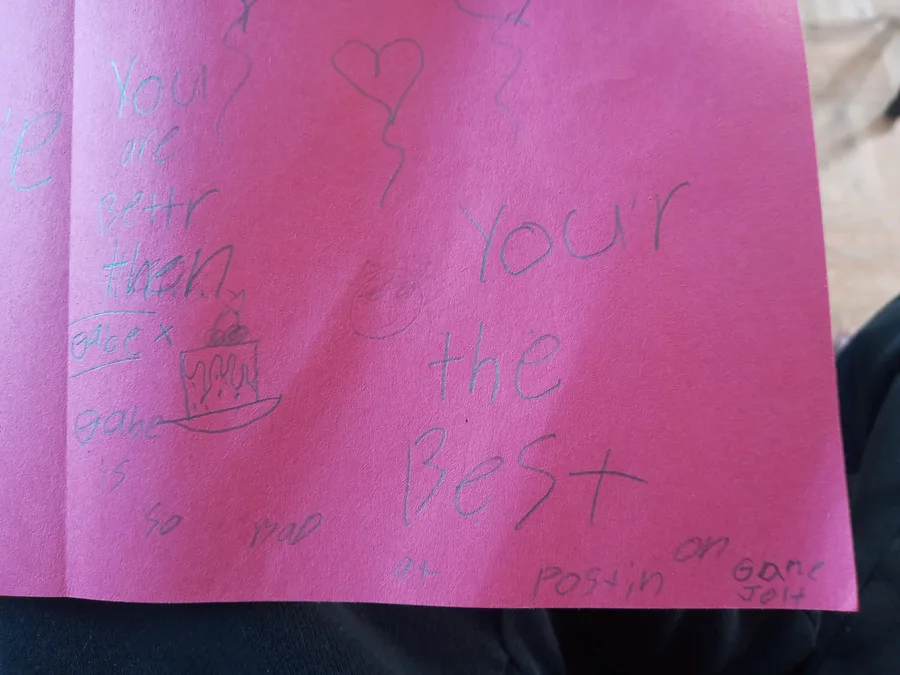 'e
You
are
Bettr
then
Gabe x
Gabe
is
so bad at postin on Game Jolt
You'r
the
Best